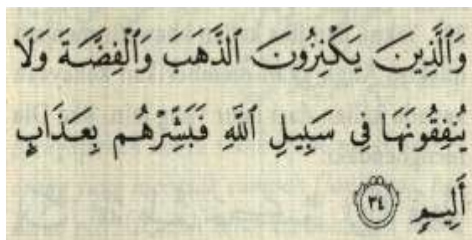 وَٱلَّذِينَ يَكْنِزُونَ ٱلذَّهَبَ وَٱلْفِضَّةَ وَلَا
يُنفِقُونَهَا فِى سَبِيلِ ٱللَّهِ فَبَشِّرْهُم بِعَذَابٍ
أَلِيمٍ ٣٤